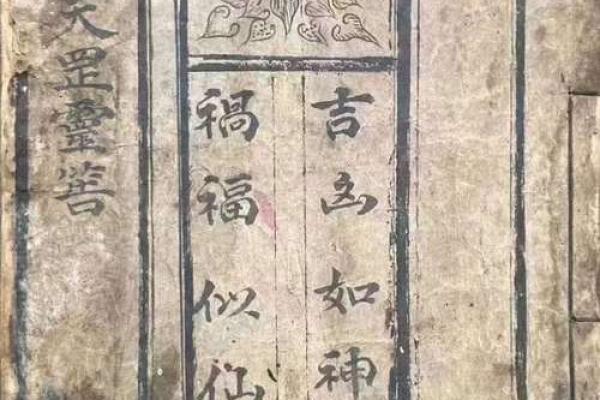 吉凶如神
禍福似仙
天罡靈筶